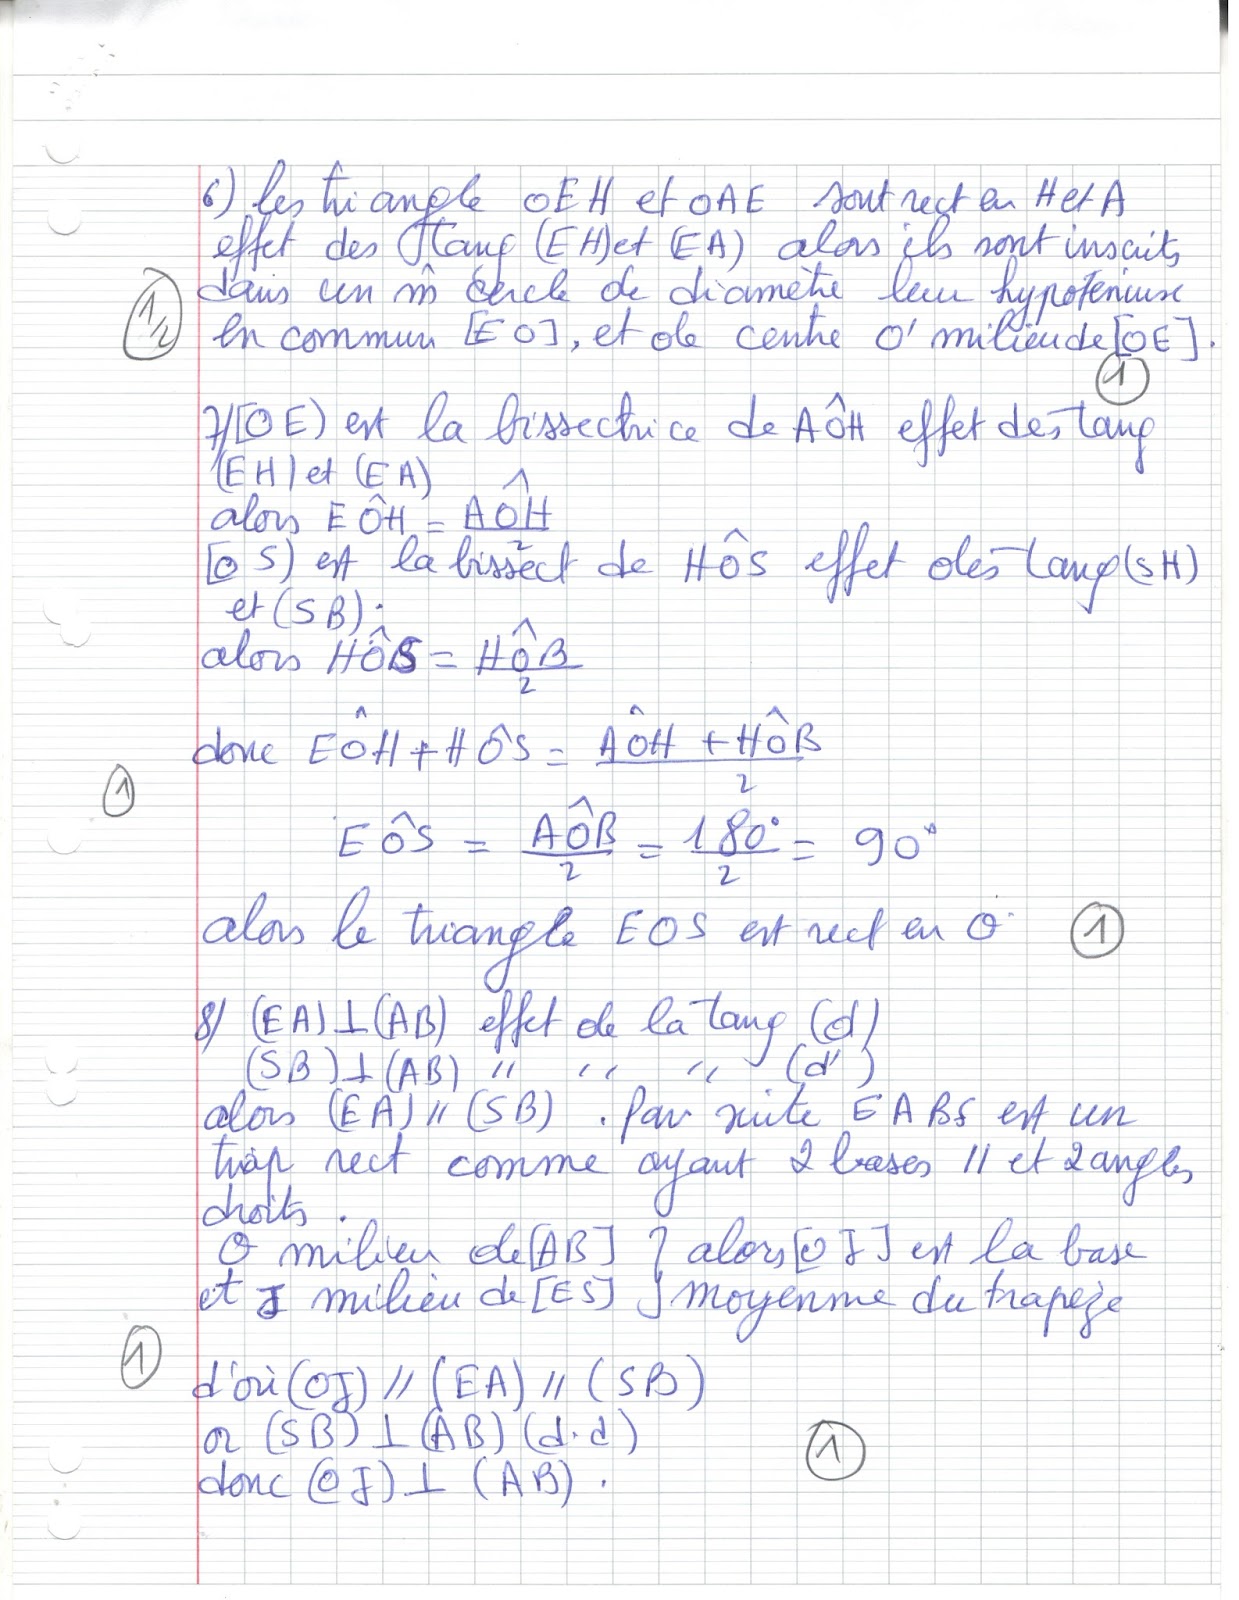 6) Les triangle OEH et OAE sont rect en H et A
effet des tang (EH) et (EA) alors ils sont inscrits
dans un m̂ cercle de diamètre leur hypoténuse
en commun [EO], et de centre O' milieu de [OE].
1/2
1
7/ [OE) est la bissectrice de AÔH effet des tang
(EH) et (EA)
alors EÔH = AÔH/2
[OS) est la bissect de HÔS effet des tang (SH)
et (SB).
alors HÔS = HÔB/2
donc EÔH + HÔS = AÔH + HÔB/2
1
EÔS = AÔB/2 = 180°/2 = 90°
alors le triangle EOS est rect en O.
1
8/ (EA) ⊥ (AB) effet de la tang (d)
(SB) ⊥ (AB) " " " (d')
alors (EA) // (SB). Par suite EABS est un
trap rect comme ayant 2 bases // et 2 angles
droits.
O milieu de [AB] } alors [OJ] est la base
et J milieu de [ES] } moyenne du trapèze
1
d'où (OJ) // (EA) // (SB)
or (SB) ⊥ (AB) (d.d)
donc (OJ) ⊥ (AB).
1